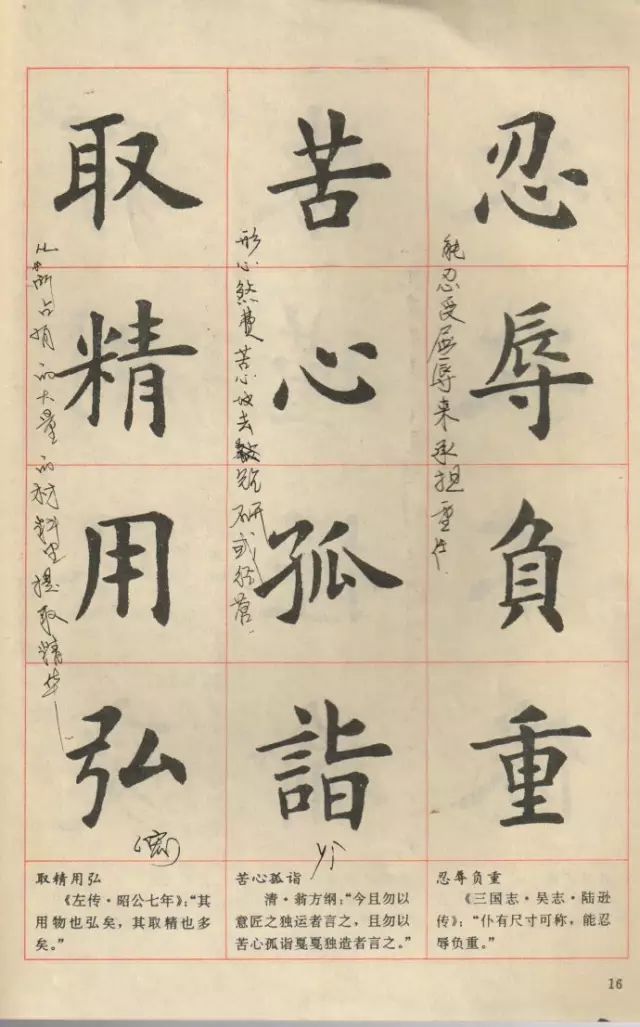 忍辱负重
能忍受屈辱来承担重任
苦心孤诣
形心煞费苦心坡去 研或经营
取精用弘
从所占有的大量的材料里提取精华
(宏)
yì
忍辱负重
《三国志·吴志·陆逊
传》:“仆有尺寸可称,能忍
辱负重。”
苦心孤诣
清·翁方纲:“今且勿以
意匠之独运者言之,且勿以
苦心孤诣戛戛独造者言之。”
取精用弘
《左传·昭公七年》:“其
用物也弘矣,其取精也多
矣。”
16